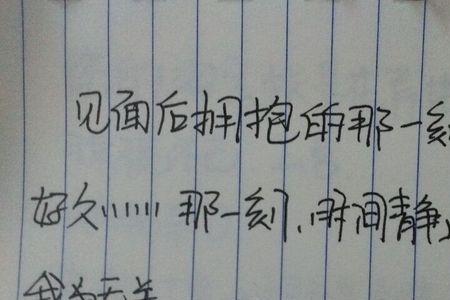 见面后拥抱的那一刻
好久……那一刻,时间静